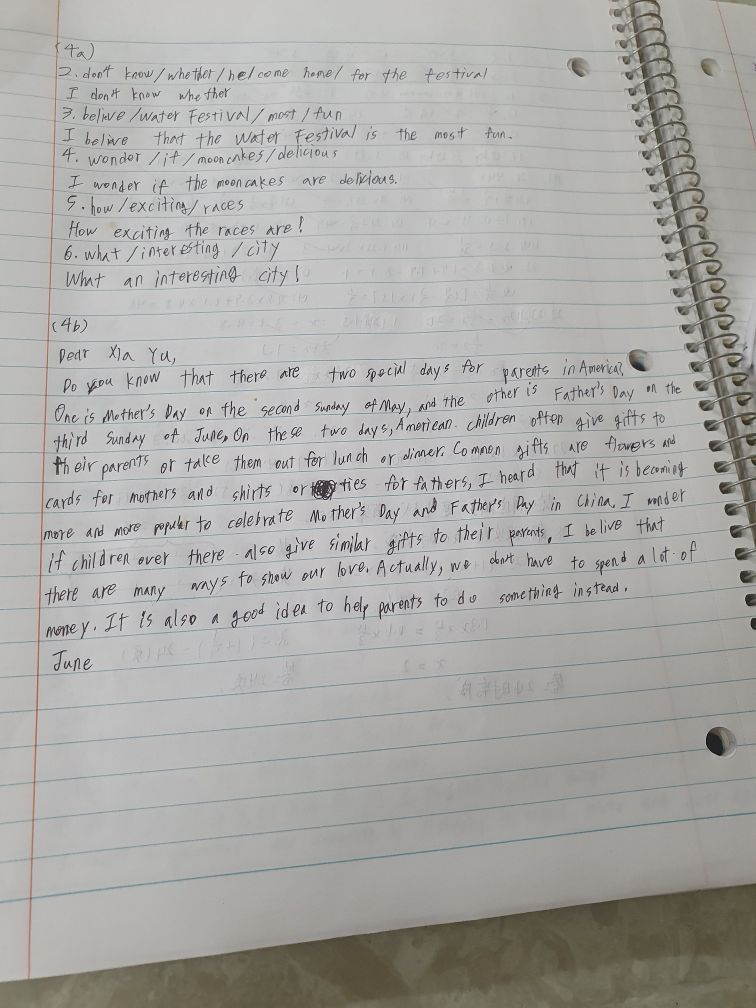 (4a)
2. don't know/whether/he/come home/ for the festival
I don't know whether
3. belive/water Festival/most/fun
I belive that the Water Festival is the most fun.
4. wonder/if/mooncakes/delicious
I wonder if the mooncakes are delicious.
5. how/exciting/races
How exciting the races are!
6. what/interesting/city
What an interesting city!
(4b)
Dear Xia Yu,
Do you know that there are two special days for parents in America?
One is Mother's Day on the second Sunday of May, and the other is Father's Day on the
third Sunday of June. On these two days, American children often give gifts to
their parents or take them out for lunch or dinner. Common gifts are flowers and
cards for mothers and shirts or ties for fathers, I heard that it is becoming
more and more popular to celebrate Mother's Day and Father's Day in China. I wonder
if children over there also give similar gifts to their parents. I belive that
there are many ways to show our love. Actually, we don't have to spend a lot of
money. It is also a good idea to help parents to do something instead.
June